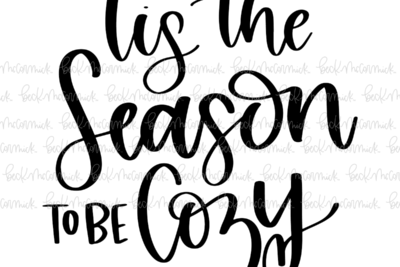 tis the
Season
TO BE Cozy